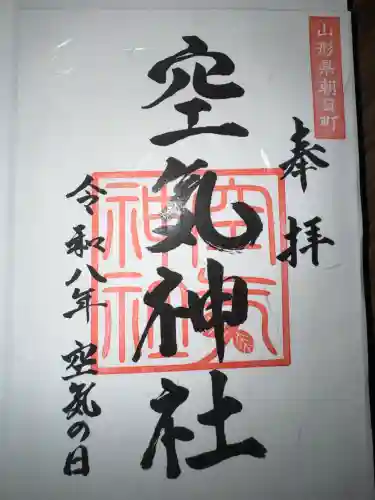 山形県朝日町
奉拝
空気神社
空気神社
令和八年 空気の日